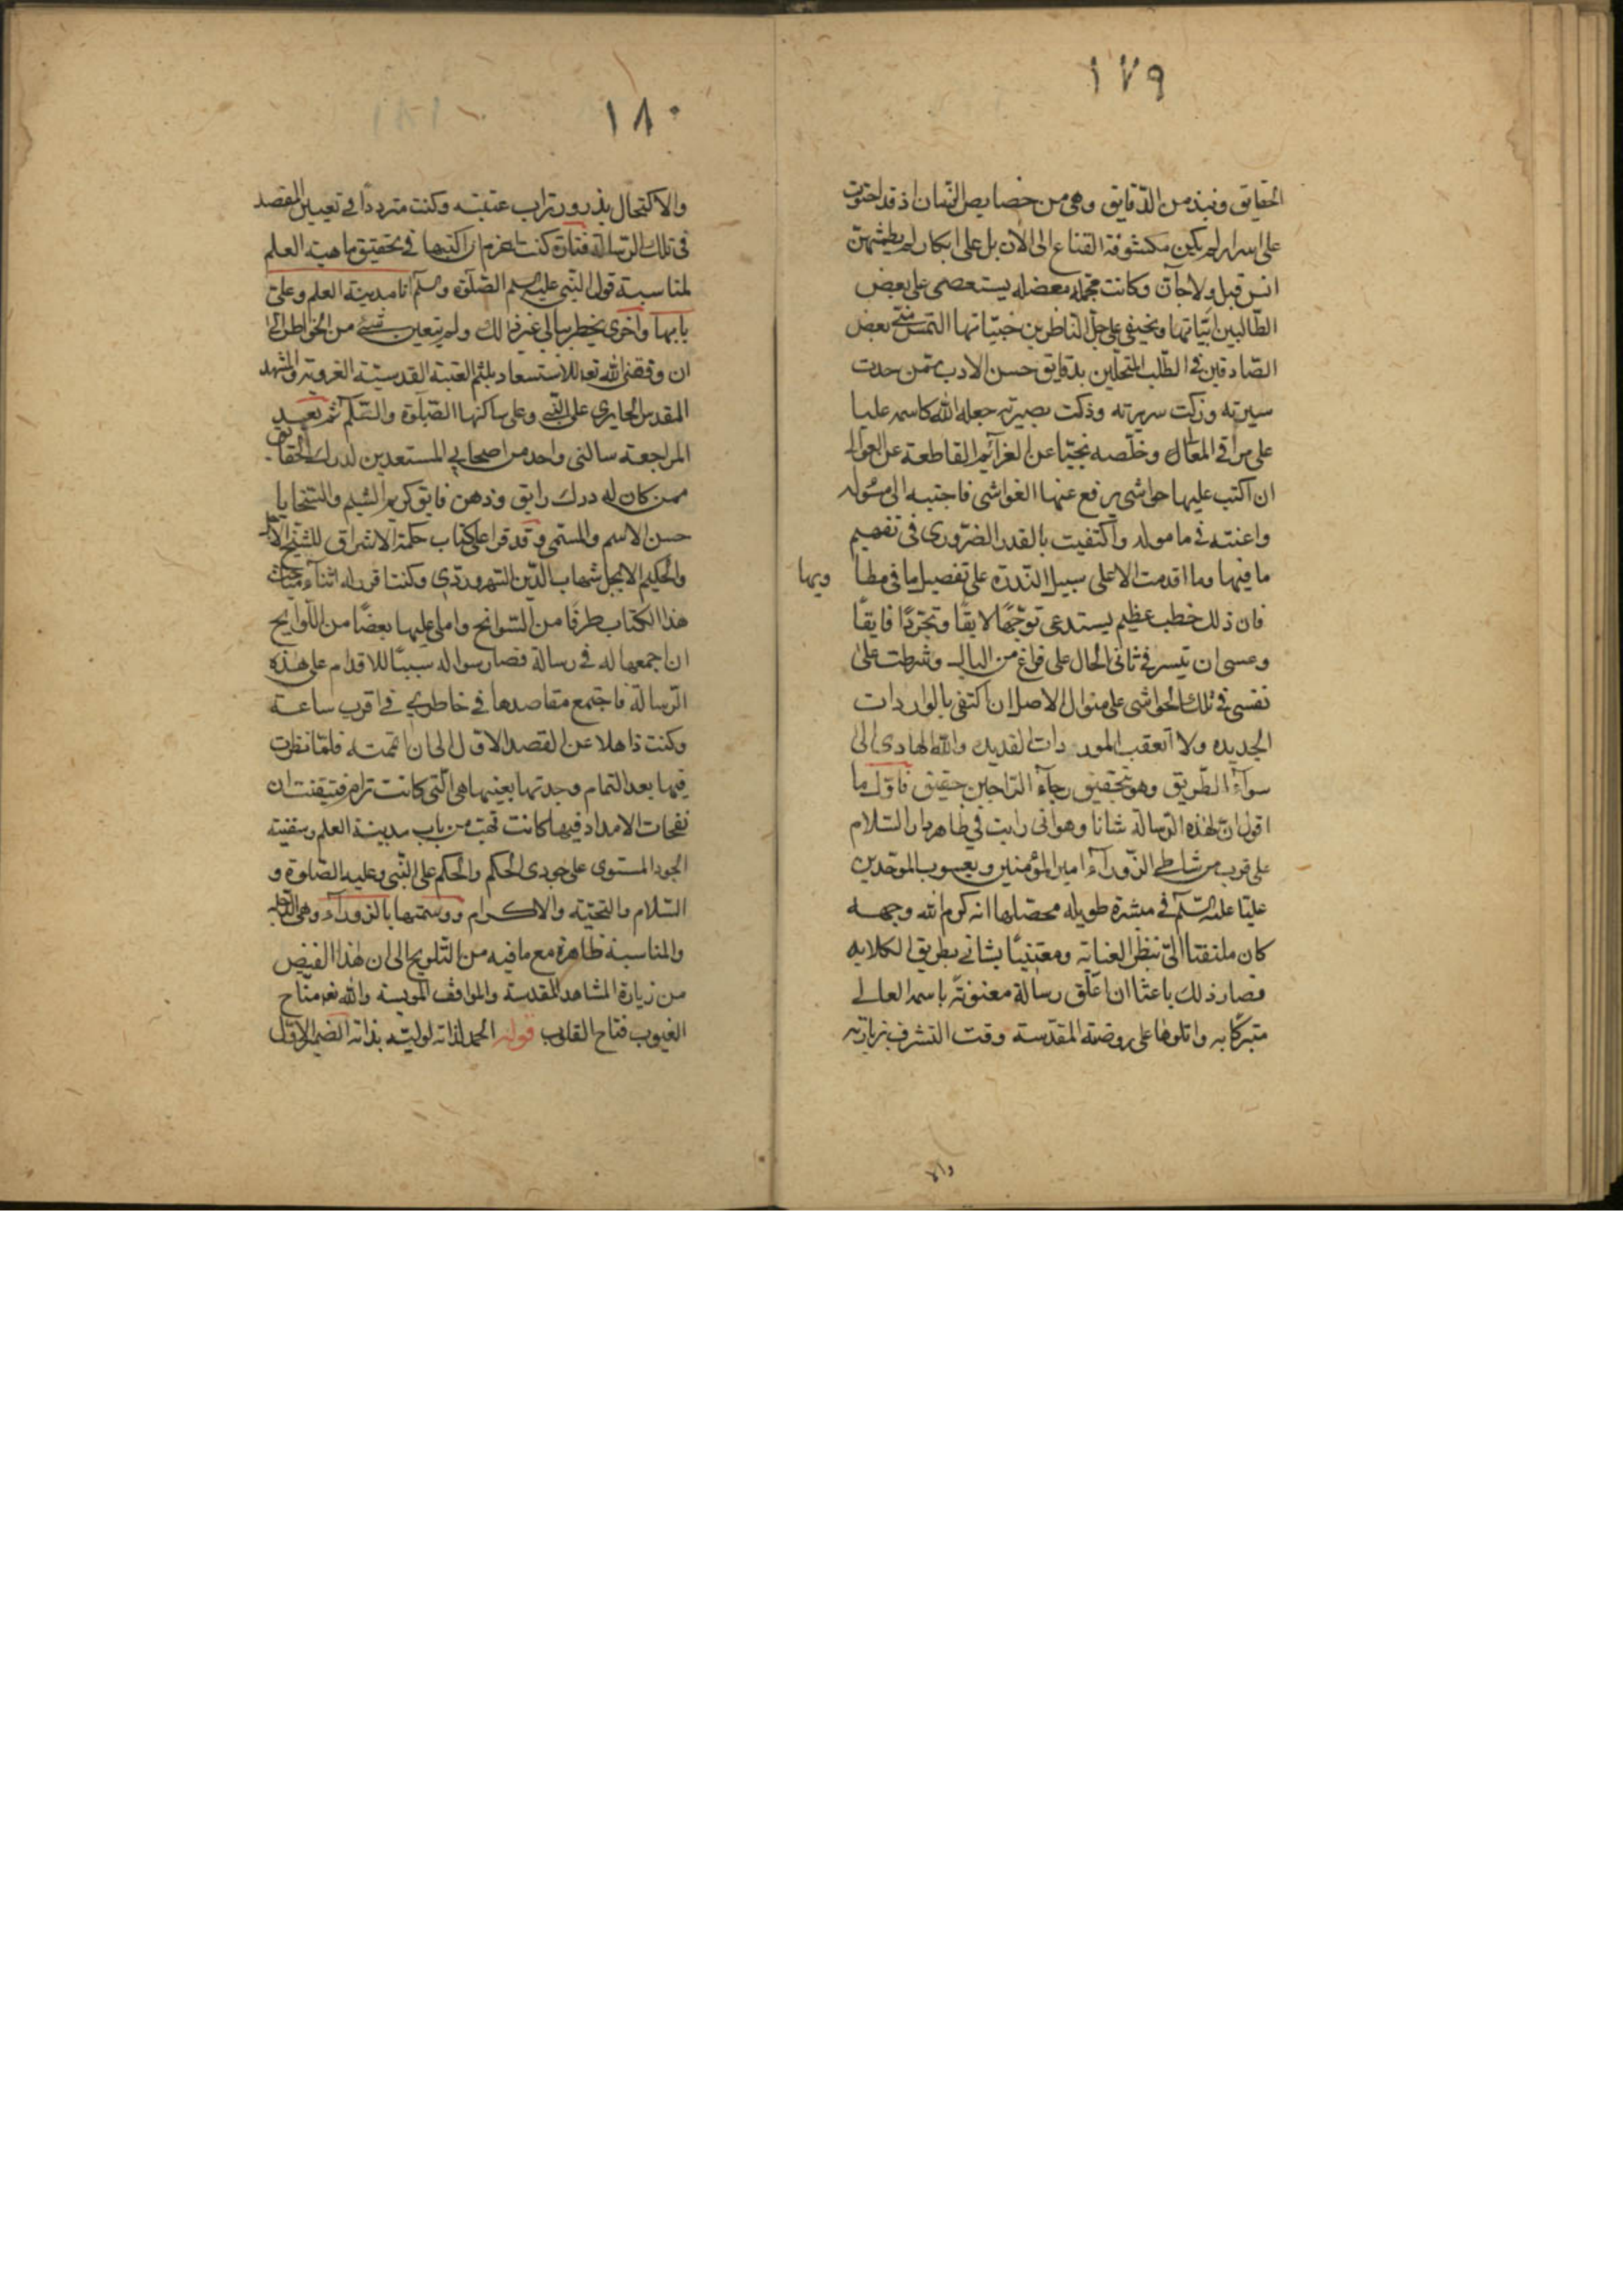 ١٧٩
الحقايق ونبذ من الدقايق وهى من خصايص الزمان اذ قد احتوت
على اسرار لم يكن مكشوفة القناع الى الان بل على ابكار لم يطمثهن
انس قبل ولا جان وكانت مجملة معضلة يستعصى على بعض
الطالبين ابياتها ويختفى على جل الناظرين خبيّاتها التمس منى بعض
الصادقين فى الطلب المتحلين بدقايق حسن الادب ممن حمدت
سيرته وزكت سريرته وذكت بصيرته جعله الله كاسمه عليا
على مراقى المعال وخلصه نجيّا عن الغرآئم القاطعة عن العوالى
ان اكتب عليها حواشى يرفع عنها الغواشى فاجتبه الى مسئوله
واعنته فى مامولة واكتفيت بالقدر الضرورى فى تفهيم
ما فيها وما اقدمت الا على سبيل الندرة على تفصيل ما فى مطا ويها
فان ذلك خطب عظيم يستدعى توجّهًا لايقًا وتجرّدًا فايقًا
وعسى ان تيسر فى ثانى الحال على فراغ من البال وشرطت على
نفسى فى تلك الحواشى على منوال الاصل ان اكتفى بالواردات
الجديده ولا اتعقب المور دات القديمه والله الهادى الى
سوآء الطريق وهو بتحقيق رجآء الراجين حقيق فاول ما
اقول ان لهذه الرسالة شانا وهو انى رايت فى ظاهر دار السلام
على قرب من شاطى الزورآء امير المؤمنين ويعسوب الموحدين
عليّا عليه السلم فى مبشرة طويله محصلها انه كرم الله وجهه
كان ملتفتا الىّ بنظر العناية ومعتنيًا بشانى بطريق الكلايه
فصار ذلك باعثا ان اعلق رسالة معنونة باسمه العالى
متبركا به واتلوها على روضته المقدسة وقت التشرف بزيارته
والا
١٨٠
والاكتحال بذرور تراب عتبته وكنت مترددًا فى تعيين المقصد
فى تلك الرسالة فتارة كنت اعزم ان اكتبها فى تحقيق ماهية العلم
لمناسبة قول النبى عليه الصلوة وسلم انا مدينة العلم وعلى
بابها واخرى يخطر ببالى غير ذلك ولم يتعين شئ من الخواطر الى
ان وفقنى الله تعالى للاستسعاد بلثم العتبة القدسية الغروية والمشهد
المقدس الحايرى على النبى وعلى ساكنها الصلوة والسلم ثم بعيد
المراجعة سالنى واحد من اصحابى المستعدين لدرك الحقايق
ممن كان له درك رايق وذهن فايق كريم الشيم والسّجايا
حسن الاسم والمسمى وقد قرا على كتاب حكمة الاشراق للشيخ الاجل
والحكيم الابجل شهاب الدين السهروردى وكنت اقرر له اثنآء مباحث
هذا الكتاب طرفًا من السوانح واملى عليها بعضًا من اللوايح
ان اجمعها له فى رسالة فصار سواله سببًا للاقدام على هذه
الرسالة فاجتمع مقاصدها فى خاطرى فى اقرب ساعة
وكنت ذاهلا عن القصد الاول الى ان اتممته فلما نظرت
فيها بعد التمام وجدتها بعينها هى التى كانت ترام فتيقنت ان
نفحات الامداد فيها كانت تهب من باب مدينة العلم وسفينة
الجود المستوى على جودى الحكم والحكم على النبى وعليه الصلوة و
السلام والتحيّة والاكرام ووسمتها بالزورآء وهى الدجلة
والمناسبة ظاهرة مع ما فيه من التلويح الى ان هذا الفيض
من زيارة المشاهد المقدسة والمواقف المونسة والله تعالى مفتاح
الغيوب فتاح القلوب قوله الحمد لذاته لوليه بذاته الضمير الاول